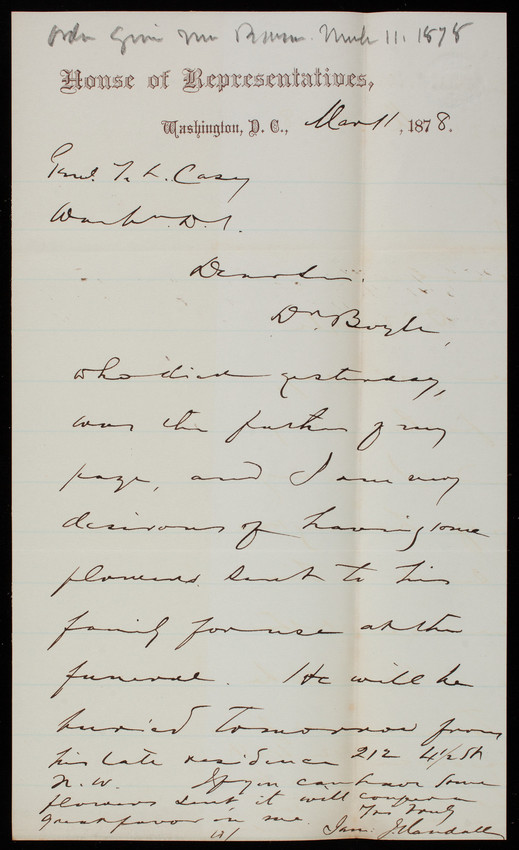 Order Given Mr Brown. March 11. 1878
House of Representatives,
Washington, D. C., Mar 11, 1878.
Genl. T. L. Casey
Washn. D. C.
Dear Sir.
Dr. Boyle,
who died yesterday,
was the father of my
page, and I am very
desirous of having some
flowers sent to his
family for use at the
funeral. He will be
buried tomorrow from
his late residence 212 4½ St
N. W. If you can have some
flowers sent it will confer a
great favor on me. Yrs Truly
Sam: J. Randall